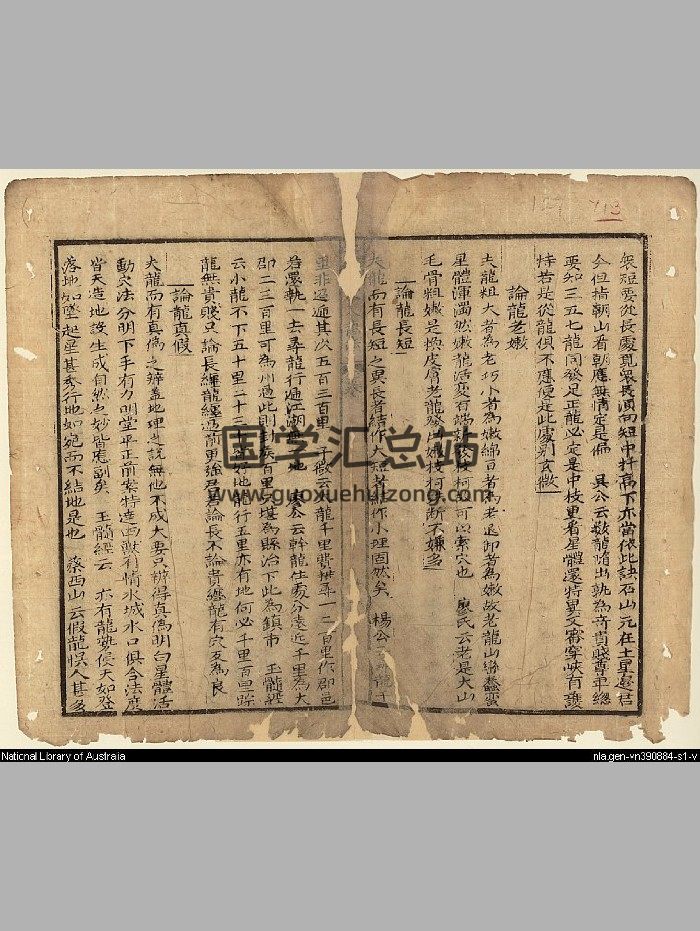 衆短要從長處覓衆長湏向短中扦高下亦當依此訣石山元在土星邉君
今但指朝山看朝應無情定是偏 吳公云教龍惰出孰為奇貴賤尊卑緫
要知三五七龍同發足正龍必定是中枝更看星體還特異又審穿峽有護
持若是從龍俱不應便是此處別玄微
論龍老嫩
夫龍粗大者為老巧小者為嫩綿亘者為老退卸者為嫩故老龍山巒蠢蠻
星體渾濁然嫩龍活变有端
穴也 廖氏云老是大山
毛骨粗嫩是換皮膚老龍發出嫩枝柯
断不嫌多
論龍長短
夫龍而有長短之異長者結作大短者結作小理固然矣 楊公
其次五百三百里 子微云
龍千里費推尋一二百里作郡邑
君還執一去尋龍行過江湖
地
云幹龍住處分遠近千里為大
郡二三百里可為州過此則封侯百里
堪為縣治下此為鎮市 玉髓經
云小龍不下五十里二十三十
好地龍行五里亦有地何必千里百里踪
龍無貴賤只論長纏龍纏過前更强君若論長不論貴纏龍有穴反為良
論龍真假
夫龍而有真偽之辨蓋地理之說無他不成大要只辨得真偽明白星體活
動穴法分明下手有力明堂平正前案特達西獸有情水城水口俱合法度
皆天造地設生成自然之妙皆應副矣 玉髓經云 亦有龍勢侵天如登
落地如墜起星甚秀行地如宛而不結地是也 蔡西山云假龍悞人甚多
国学汇总站
www.guoxuehuizong.com
13
National Library of Australia
nla.gen-vn390884-s1-v